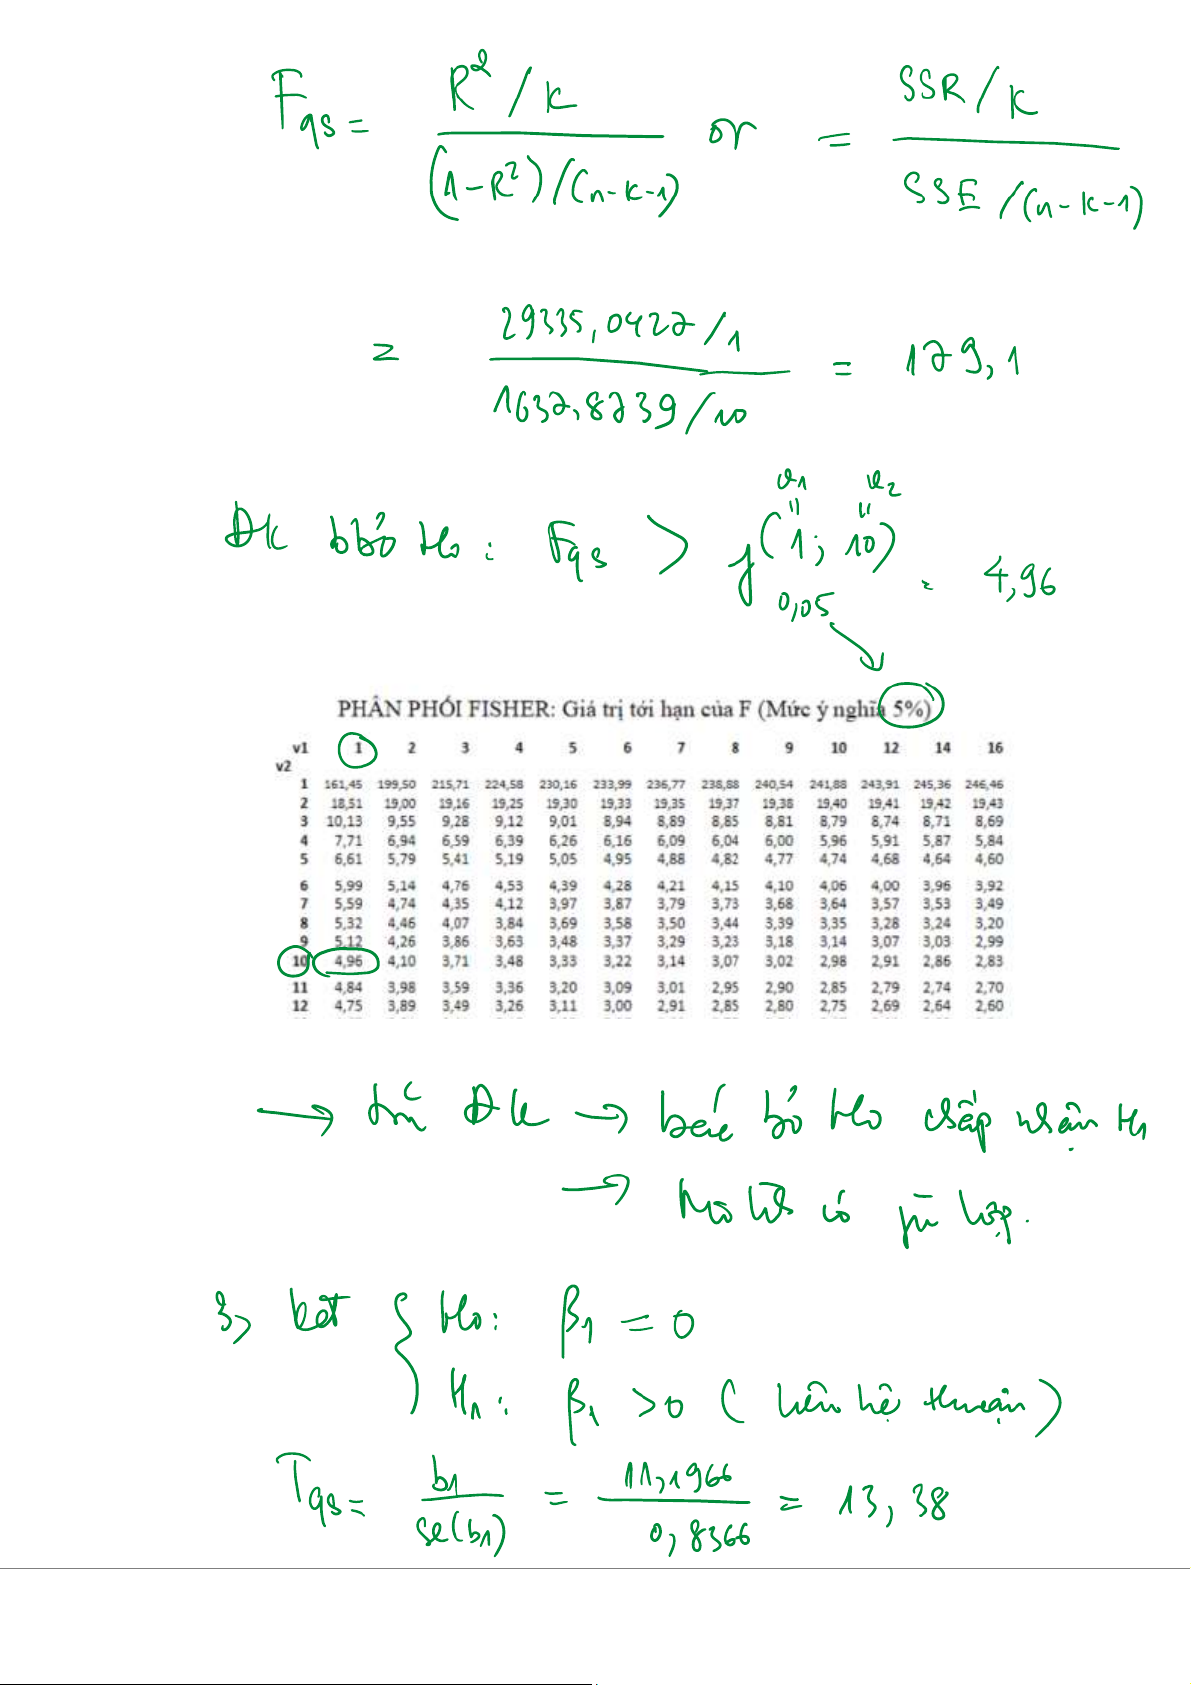 Fqs = R²/k / (1-R²)/(n-k-1) or = SSR/k / SSE/(n-k-1)
= 29335,0427/1 / 1637,8739/10 = 179,1
v1 v2
" "
Đk bbỏ Ho: Fqs > f(1; 10) 0,05 = 4,96
PHÂN PHỐI FISHER: Giá trị tới hạn của F (Mức ý nghĩa 5%)
v1 1 2 3 4 5 6 7 8 9 10 12 14 16
v2
1 161,45 199,50 215,71 224,58 230,16 233,99 236,77 238,88 240,54 241,88 243,91 245,36 246,46
2 18,51 19,00 19,16 19,25 19,30 19,33 19,35 19,37 19,38 19,40 19,41 19,42 19,43
3 10,13 9,55 9,28 9,12 9,01 8,94 8,89 8,85 8,81 8,79 8,74 8,71 8,69
4 7,71 6,94 6,59 6,39 6,26 6,16 6,09 6,04 6,00 5,96 5,91 5,87 5,84
5 6,61 5,79 5,41 5,19 5,05 4,95 4,88 4,82 4,77 4,74 4,68 4,64 4,60
6 5,99 5,14 4,76 4,53 4,39 4,28 4,21 4,15 4,10 4,06 4,00 3,96 3,92
7 5,59 4,74 4,35 4,12 3,97 3,87 3,79 3,73 3,68 3,64 3,57 3,53 3,49
8 5,32 4,46 4,07 3,84 3,69 3,58 3,50 3,44 3,39 3,35 3,28 3,24 3,20
9 5,12 4,26 3,86 3,63 3,48 3,37 3,29 3,23 3,18 3,14 3,07 3,03 2,99
10 4,96 4,10 3,71 3,48 3,33 3,22 3,14 3,07 3,02 2,98 2,91 2,86 2,83
11 4,84 3,98 3,59 3,36 3,20 3,09 3,01 2,95 2,90 2,85 2,79 2,74 2,70
12 4,75 3,89 3,49 3,26 3,11 3,00 2,91 2,85 2,80 2,75 2,69 2,64 2,60
→ Đk → bác bỏ Ho chấp nhận H1
→ Mô hình có phù hợp.
3, { Ho: β1 = 0
H1: β1 > 0 (liên hệ thuận)
Tqs = b1 / se(b1) = 11,1966 / 0,8366 = 13,38